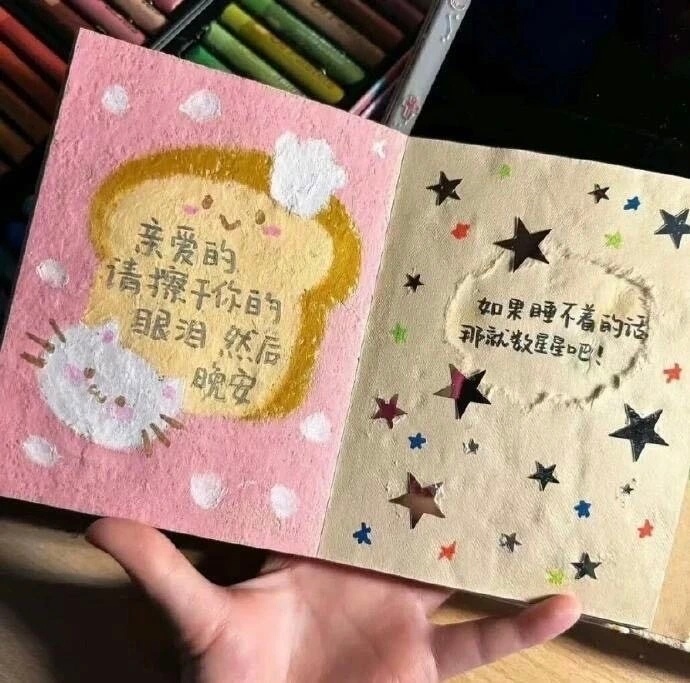 亲爱的
请擦干你的
眼泪,然后
晚安
如果睡不着的话
那就数星星吧!